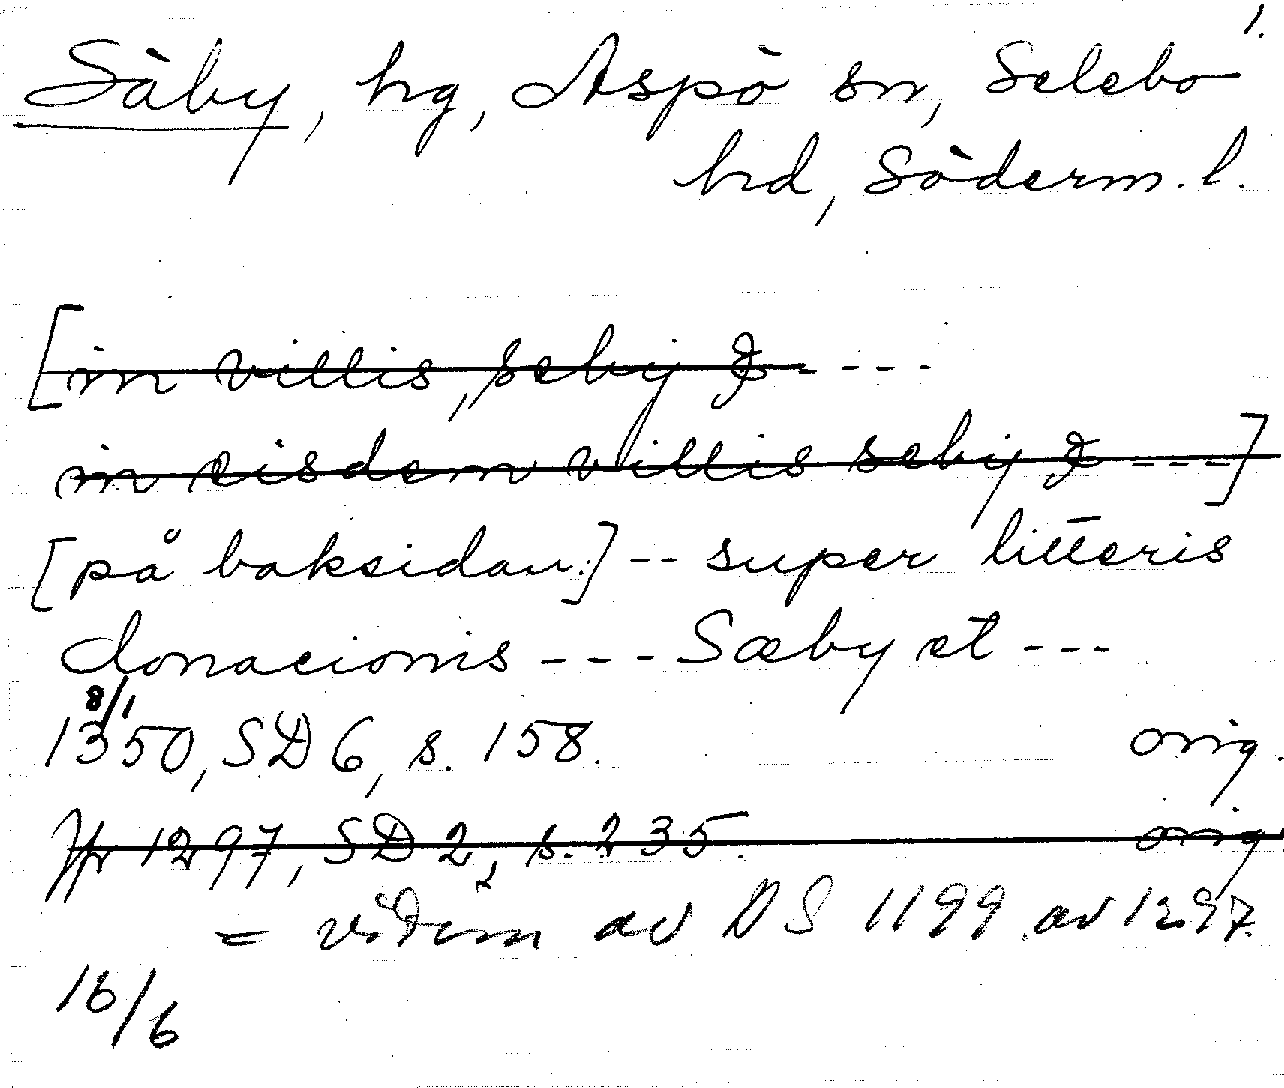 1.
Säby, hg, Aspö sn, Selebo
hd, Söderm. l.
[in villis, seby & - - - -
in eisdem villis seby & - - -]
[på baksidan:] -- super litteris
donacionis - - - Sæby et - - -
8/1
1350, SD 6, s. 158. orig.
Jfr 1297, SD 2, s. 235. orig
= vidim av DS 1199 av 1297.
16/6